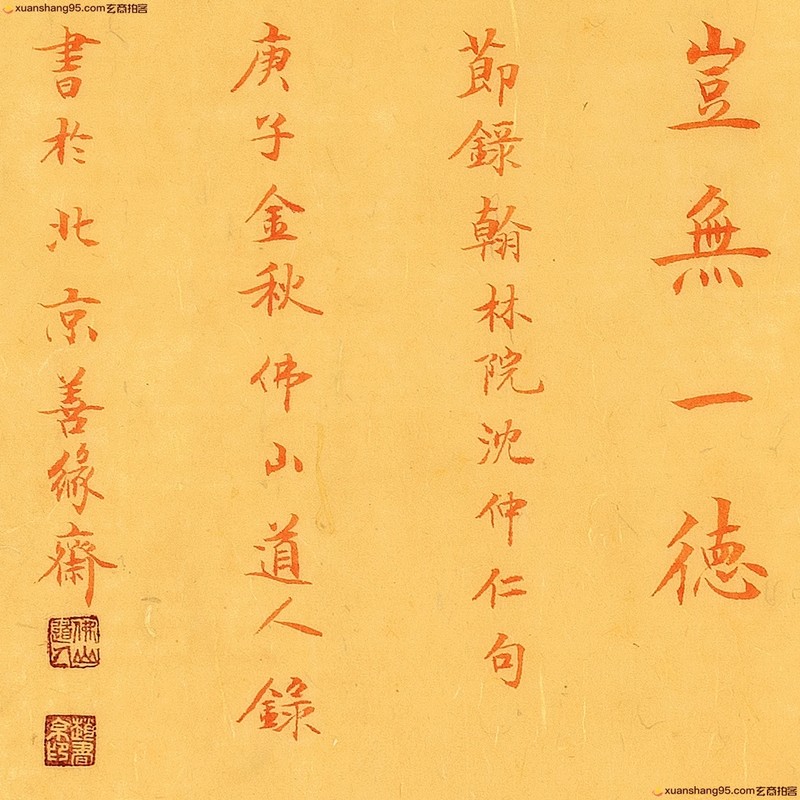 xuanshang95.com玄商拍客
豈無一德
節錄翰林院沈仲仁句
庚子金秋佛山道人錄
書於北京善緣齋
佛山道人
xuanshang95.com玄商拍客